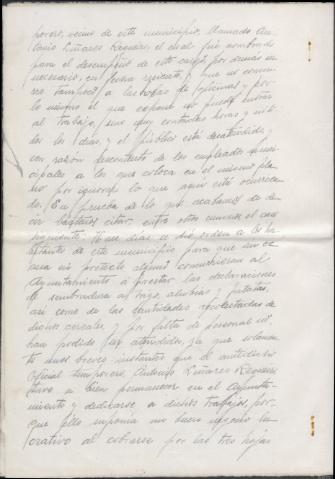 porero, vecino de este municipio, llamado An-
tonio Liñares Regueiro, el cual fué nombrado
para el desempeño de este cargo, por demás in-
necesario, en fecha reciente, que no concu-
rre tampoco a las horas de oficinas y por
lo mismo el que expone no puede entrar
al trabajo, sino muy contadas horas y no to-
dos los días, y el público está desatendido, y
con razón descontento de los empleados muni-
cipales a los que coloca en el mismo pla-
no por ignorar lo que aquí está ocurrien-
do. En prueba de lo que acabamos de de-
cir bástanos citar entre otros muchos el caso
siguiente: Hace días se dió orden a los ha-
bitantes de este municipio para que sin ex-
cusa ni pretexto alguno concurrieran al
Ayuntamiento a prestar las declaraciones
de sembradura de trigo, alubias y patatas,
así como de las cantidades recolectadas de
dicho cereales, y por falta de personal no
han podido ser atendidos, ya que solamen-
te unos breves instantes que el antedicho
oficial temporero, Antonio Liñares Regueiro
tuvo a bien permanecer en el Ayunta-
miento y dedicarse a dichos trabajos, por-
que ello suponía un buen negocio lu-
crativo al cobrarse por las tres hojas